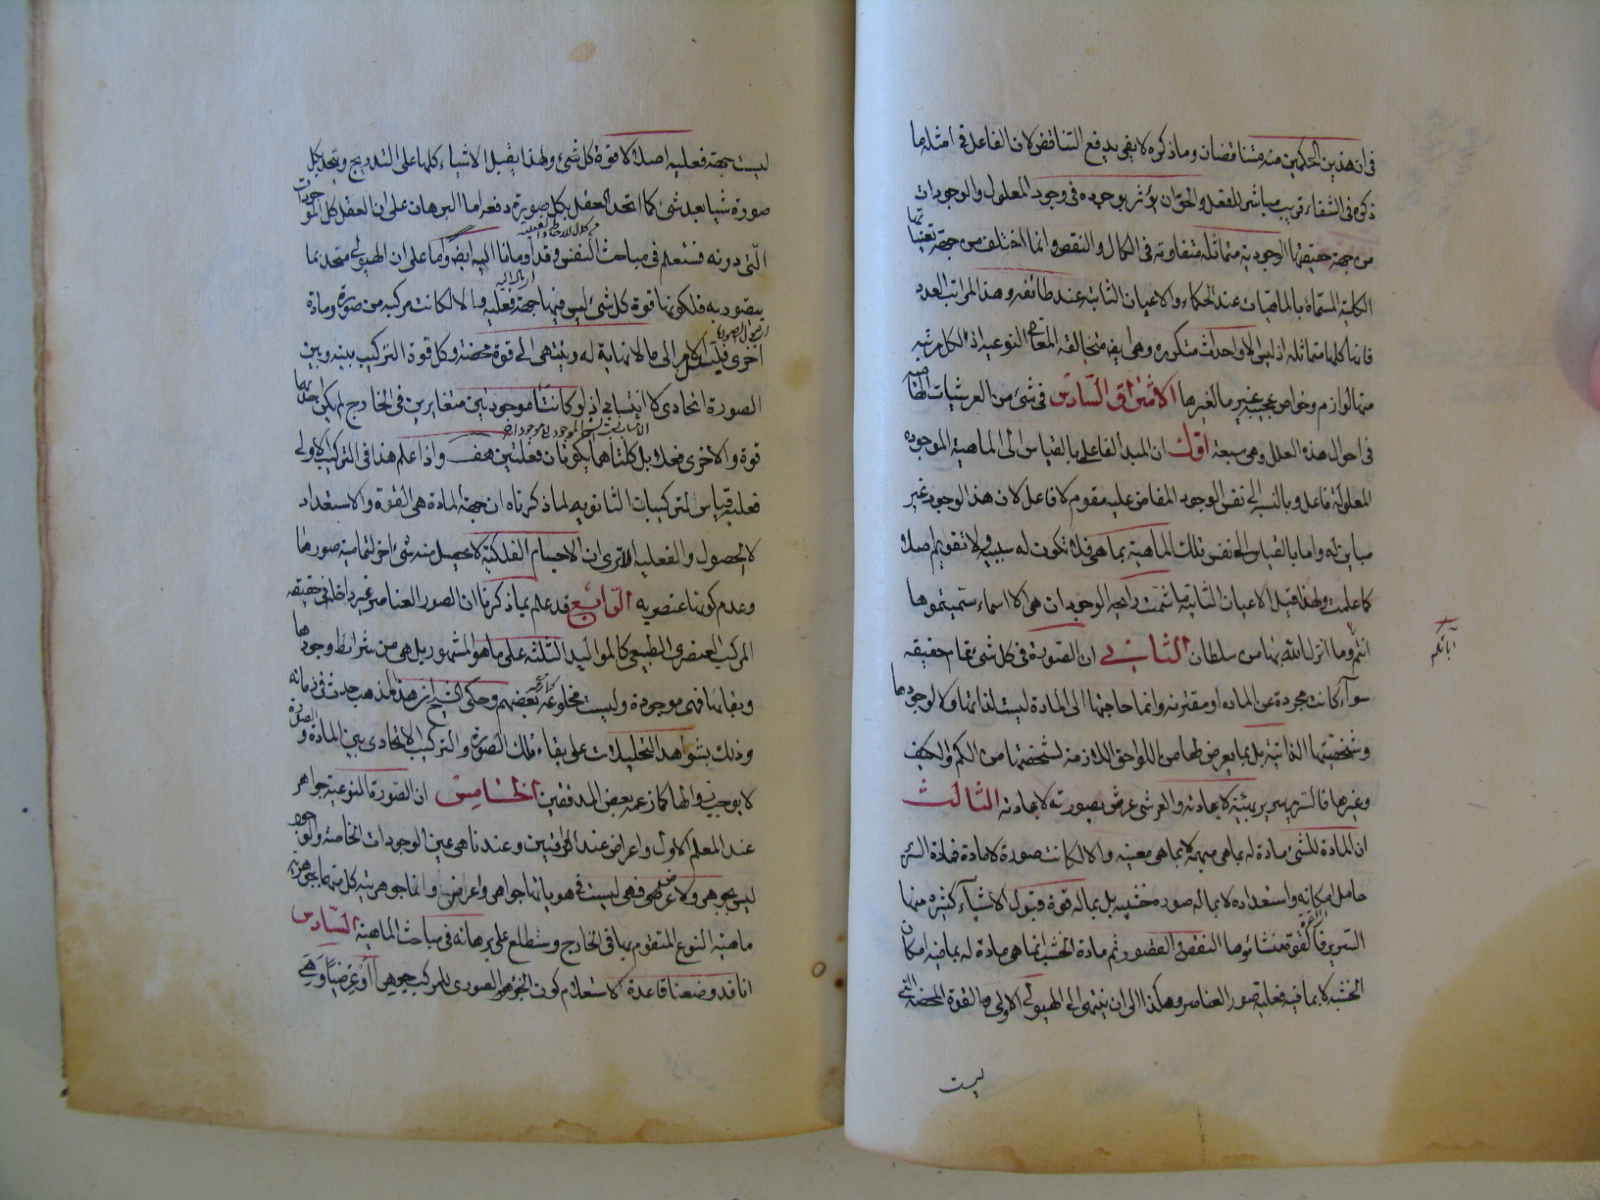 فى ان هذين الحكمين منه متناقضان وما ذكره لا يفى بدفع التناقض لان الفاعل فى امثله ما
ذكره فى الشفاء قريب مباشر للفعل والحق ان يؤثر بوجوده فى وجود المعلول والوجودات
من جهة حقيقتها الوجودية متماثلة متفاوتة فى الكمال والنقص وانما اختلف من جهة تعيناتها
الكلية المسماة بالماهيات عند الحكماء والاعيان الثابتة عند طائفه وهذا المراتب العدد
فانها كلها متماثله اذ ليس الاواحداث متكرره وهى ايضا متخالفه المعانى النوعيه اذ لكل مرتبه
منها لوازم وخواص عجيبه غير ما لغيرها الاشراق السّادس فى شىء من العرشيات
فى احوال هذه العلل وهى سبعة الاول ان المبدا الفاعلى بالقياس الى الماهية الموجوده
المعلولة فاعل وبالنسبه الى نفس الوجود المفاض عليه مقوم لا فاعل لان هذا الوجود غير
مباين له واما بالقياس الى نفس تلك الماهية بما هى فلا تكون له سببيه ولا تقويم اصلا
كما علمت ولهذا قيل الاعيان الثابتة ما شمت رائحه الوجود ان هى الا اسماء سميتموها
انتم وما انزل الله بها من سلطان الثانى ان الصورة فى كل شىء تمام حقيقته
آبائكم
سوآء كانت مجردة عن الماده او مقترنه وانما حاجتها الى المادة ليست لذاتها ولا لوجودها
وشخصيتها الذاتية بل بما يعرض لها من اللواحق اللازمة لشخصيتها من الكم والكيف
وغيرها فالسرير سرير بهيئته لا بمادته والعرش عرش بصورته لا بمادته الثالث
ان المادة للشىء مادة له بما هى مبهمة لا بما هى معينه والا لكانت صورة لا مادة فمادة السرير
حامل امكانه واستعداده لا بماله صوره خشبيه بل بماله قوة قبول الاشيآء كثيره منها
السرير فالقوة منشاؤها النقص والقصور ثم مادة الخشب انما هى مادة له بما فيه امكان
الخشبه لا بما فيه فعلية صور العناصر وهكذا الى ان ينتهى الى الهيولى الاولى وهى القوة المحضه التى
ليست
ليست جهة فعليه اصلا الا قوة كل شىء ولهذا يقبل الاشياء كلها على التدريج ويتحد بكل
صورة شيئا بعد شىء كما اتحد العقل بكل صورة دفعه اما البرهان على ان العقل كل الموجودات
التى دونه فستعلم فى مباحث النفس وقد اومانا اليه ايضا واما على ان الهيولى متحد بما
يتصور به فلكونها قوة كل شىء ليس فيها جهة فعليه والا لكانت مركبه من صورة ومادة
اخرى فينتقل الكلام الى ما لا نهاية له وينتهى الى قوة محضة وكل قوة التركيب بينه وبين
الصورة اتحادى لا انتسابى اذ لو كانتا موجودتين متغايرين فى الخارج لم يكن احديهما
قوة والاخرى فعلا بل كلتاهما يكونان فعليتين هف واذا علم هذا فى التركيب الاولى
فعليه قياس التركيبات الثانويه لما ذكرناه ان جهة المادة هى القوة والاستعداد
لا الحصول والفعليه الا ترى ان الاجسام الفلكية لا يحصل منه شىء اخر لتمامية صورها
وعدم كونها عنصريه الرّابع قد علم بما ذكرنا ان الصور العناصر غير داخله فى حقيقه
المركب العنصرى الطبيعى كالمواليد الثلثة على ما هو المشهور بل هى من شرائط وجودها
وبقائها فهى موجودة وليست مخلوعة كما زعمه بعضهم وحكى الشيخ ان هذا المذهب حدث فى زمانه
وذلك بشواهد التحليلات على بقاء تلك الصورة والتركيب الاتحادى بين المادة والصورة
لا يوجب زوالها كما زعمه بعض المدققين الخامس ان الصورة النوعية جواهر
عند المعلم الاول واعراض عند الرواقيين وعندنا هى عين الوجودات الخاصة والوجود
ليس بجوهر ولا عرض فهى ليست فى هوياتها جواهر واعراض وانما جوهريه كل منها بجوهرية
ماهية النوع المتقوم بها فى الخارج وستطلع على برهانه فى مباحث الماهية السّادس
انا قد وضعنا قاعدة لاستعلام كون الجزء الصورى للمركب جوهرا او عرضيا وهى